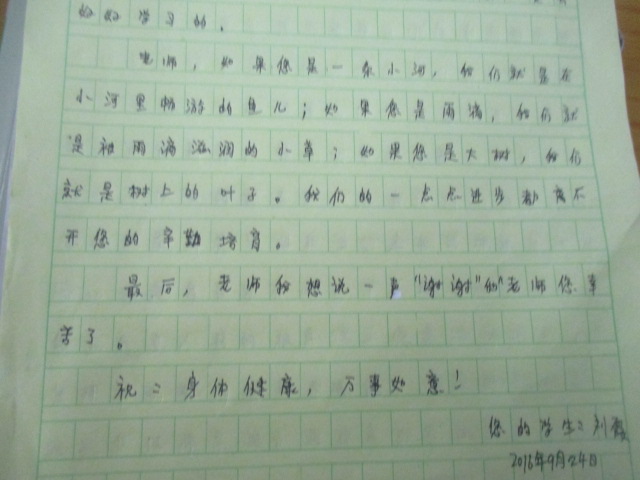 好好学习的。
老师，如果您是一条小河，我们就是在
小河里畅游的鱼儿；如果您是雨滴，我们就
是被雨滴滋润的小草；如果您是大树，我们
就是树上的叶子。我们的一点点进步都离不
开您的辛勤培育。
最后，老师我想说一声"谢谢"和"老师您辛
苦了。
祝：身体健康，万事如意！
您的学生：刘
2016年9月24日